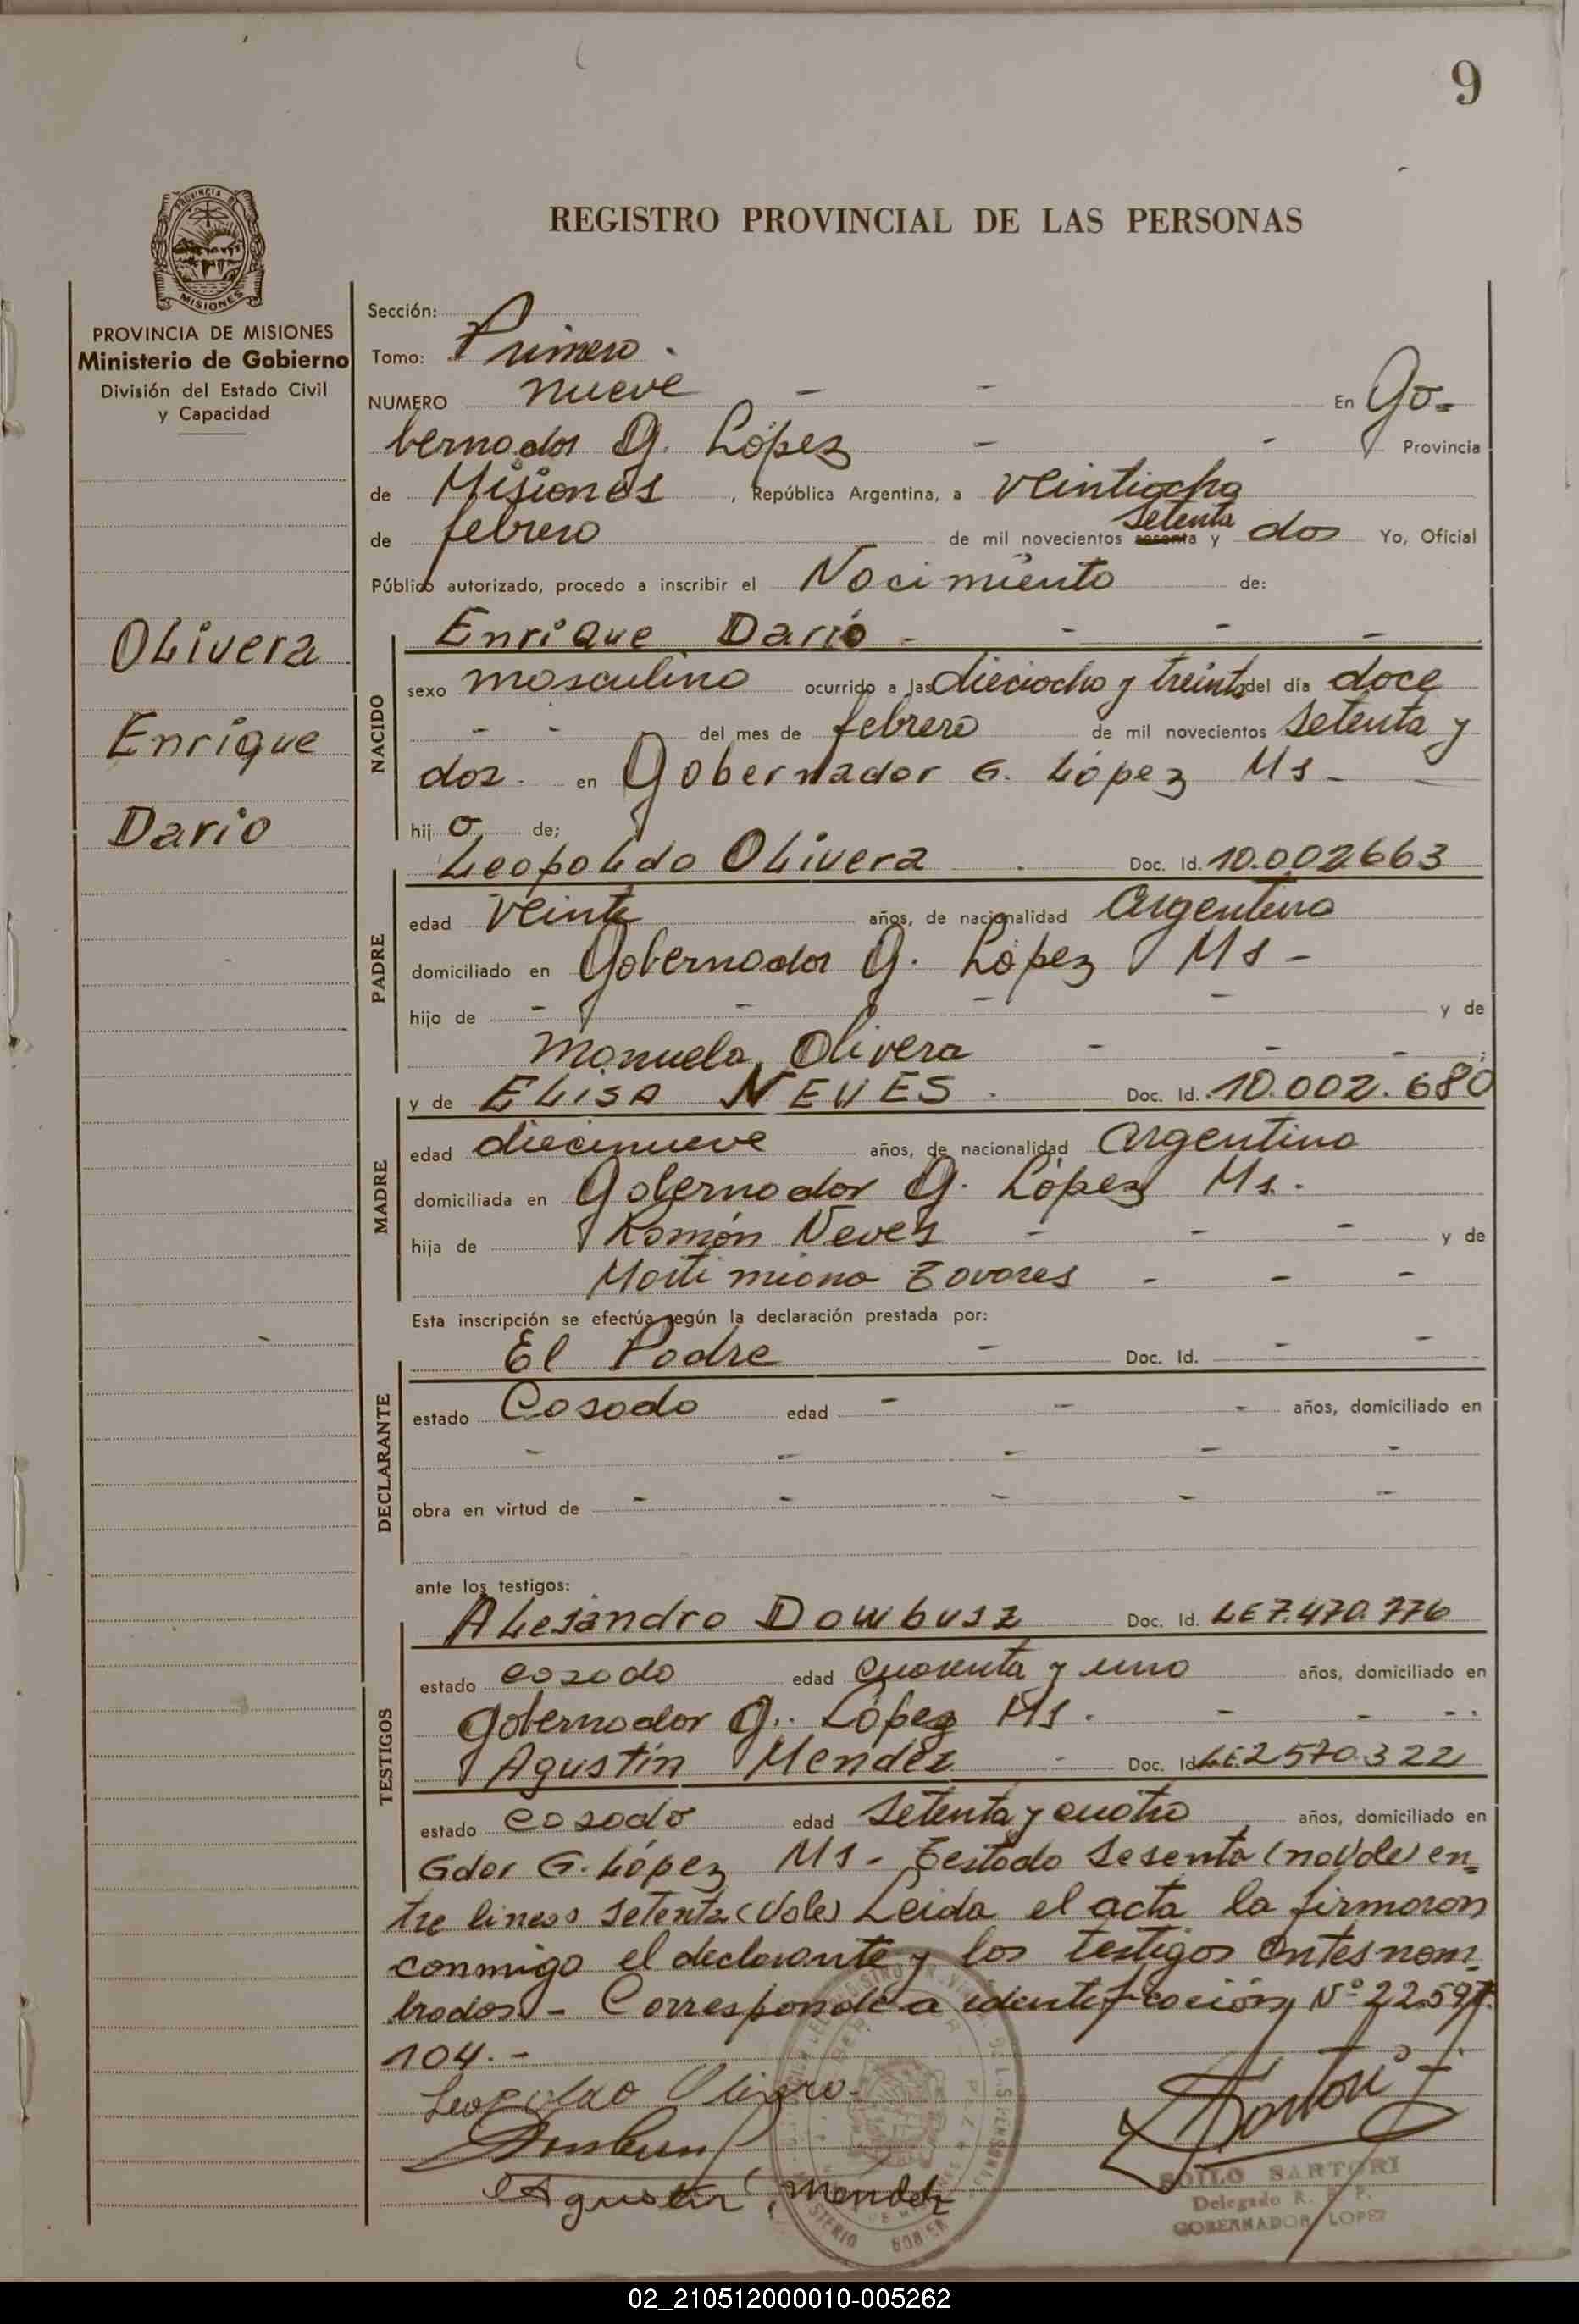 9
REGISTRO PROVINCIAL DE LAS PERSONAS
PROVINCIA DE
MISIONES
PROVINCIA DE MISIONES
Ministerio de Gobierno
División del Estado Civil
y Capacidad
Olivera
Enrique
Dario
Sección:
Tomo: Primero.
NUMERO nueve - - En Go=
bernador G. López - - Provincia
de Misiones, República Argentina, a veintiocho
setenta
de febrero de mil novecientos sesenta y dos Yo, Oficial
Público autorizado, procedo a inscribir el Nacimiento de:
NACIDO
Enrique Darío - - - -
sexo masculino ocurrido a las dieciocho y treinta del día doce
- - del mes de febrero de mil novecientos setenta y
dos. en Gobernador G. López Ms -
hijo de;
PADRE
Leopoldo Olivera . Doc. Id. 10.002663
edad veinte años, de nacionalidad Argentina
domiciliado en Gobernador G. López Ms -
hijo de - - - - y de
Manuela Olivera - - - ;
MADRE
y de ELISA NEVES . Doc. Id. 10.002.680
edad diecinueve años, de nacionalidad Argentina
domiciliada en Gobernador G. López Ms.
hija de Ramón Neves - - - y de
Martimiana Tavares - - -
Esta inscripción se efectúa según la declaración prestada por:
DECLARANTE
El Padre - Doc. Id. - -
estado Casado edad - - - años, domiciliado en
- - - - -
obra en virtud de - - - - -
ante los testigos:
TESTIGOS
Alejandro Dowbusz Doc. Id. LE7.470.776
estado casado edad cuarenta y uno años, domiciliado en
Gobernador G. López Ms. - - -.
Agustín Mendez - Doc. Id LE.2570.322
estado casado edad setenta y cuatro años, domiciliado en
Gdor G. López Ms - Testado sesenta (no vale) en=
tre lineas setenta (Vale) Leida el acta la firmaron
conmigo el declarante y los testigos antes nom-
brados. - Corresponde a identificación, Nº 22.597.
104.-
Leopoldo Olivera.
Agustin Mendez
Sartori
SOILO SARTORI
Delegado R. P. P.
GOBERNADOR LOPEZ
02_210512000010-005262